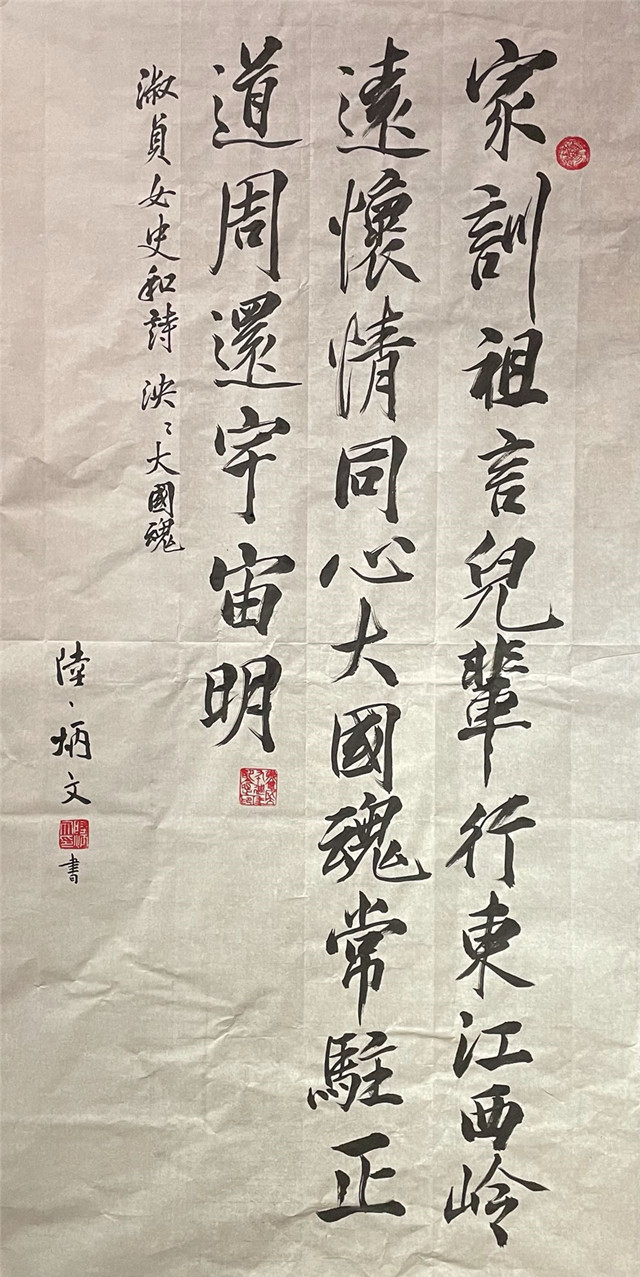 家訓祖言兒輩行東江西岭
遠懷情同心大國魂常駐正
道周還宇宙明
淑貞女史和詩 泱〻大國魂
陸、炳文
書